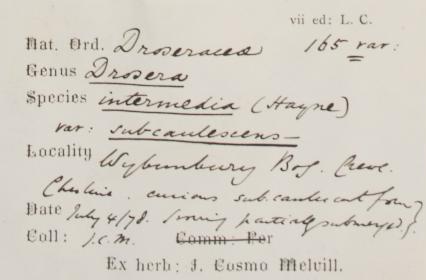 vii ed: L. C.
Nat. Ord. Droseraceæ 165 var:
Genus Drosera
Species intermedia (Hayne)
var: subcaulescens
Locality Wybunbury Bog. Crewe.
Cheshire. curious subcaulescent form
Date July 4/78. growing partially submerged.
Coll: J.C.M. Comm: Per
Ex herb: J. Cosmo Melvill.